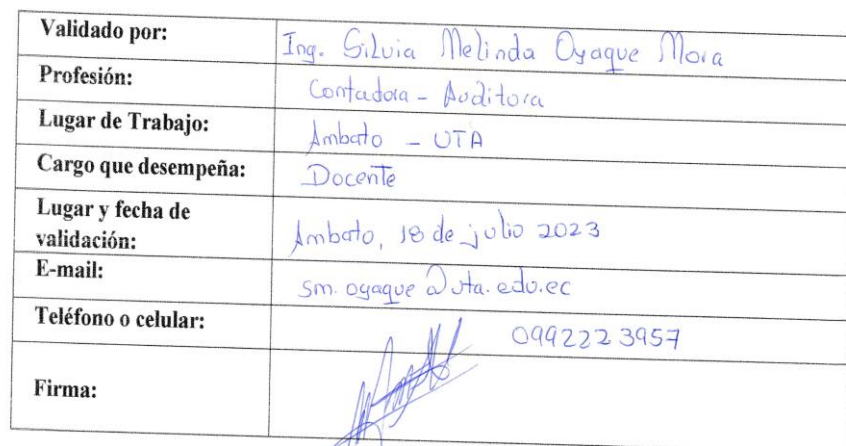 Validado por: Ing. Silvia Melinda Oyaque Mora
Profesión: Contadora - Auditora
Lugar de Trabajo: Ambato - UTA
Cargo que desempeña: Docente
Lugar y fecha de
validación: Ambato, 18 de julio 2023
E-mail: sm.oyaque@uta.edu.ec
Teléfono o celular: 0992223957
Firma: